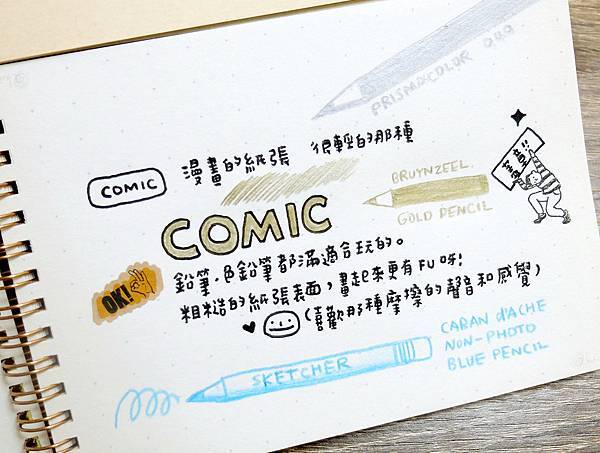 PRISMACOLOR
COMIC
漫畫的紙張 很輕的那種
BRUYNZEEL.
GOLD PENCIL
COMIC
OK!
鉛筆.色鉛筆都滿適合玩的。
粗糙的紙張表面,畫起來更有FU呀!
(喜歡那種摩擦的聲音和感覺)
SKETCHER
CARAN d'ACHE
NON-PHOTO
BLUE PENCIL